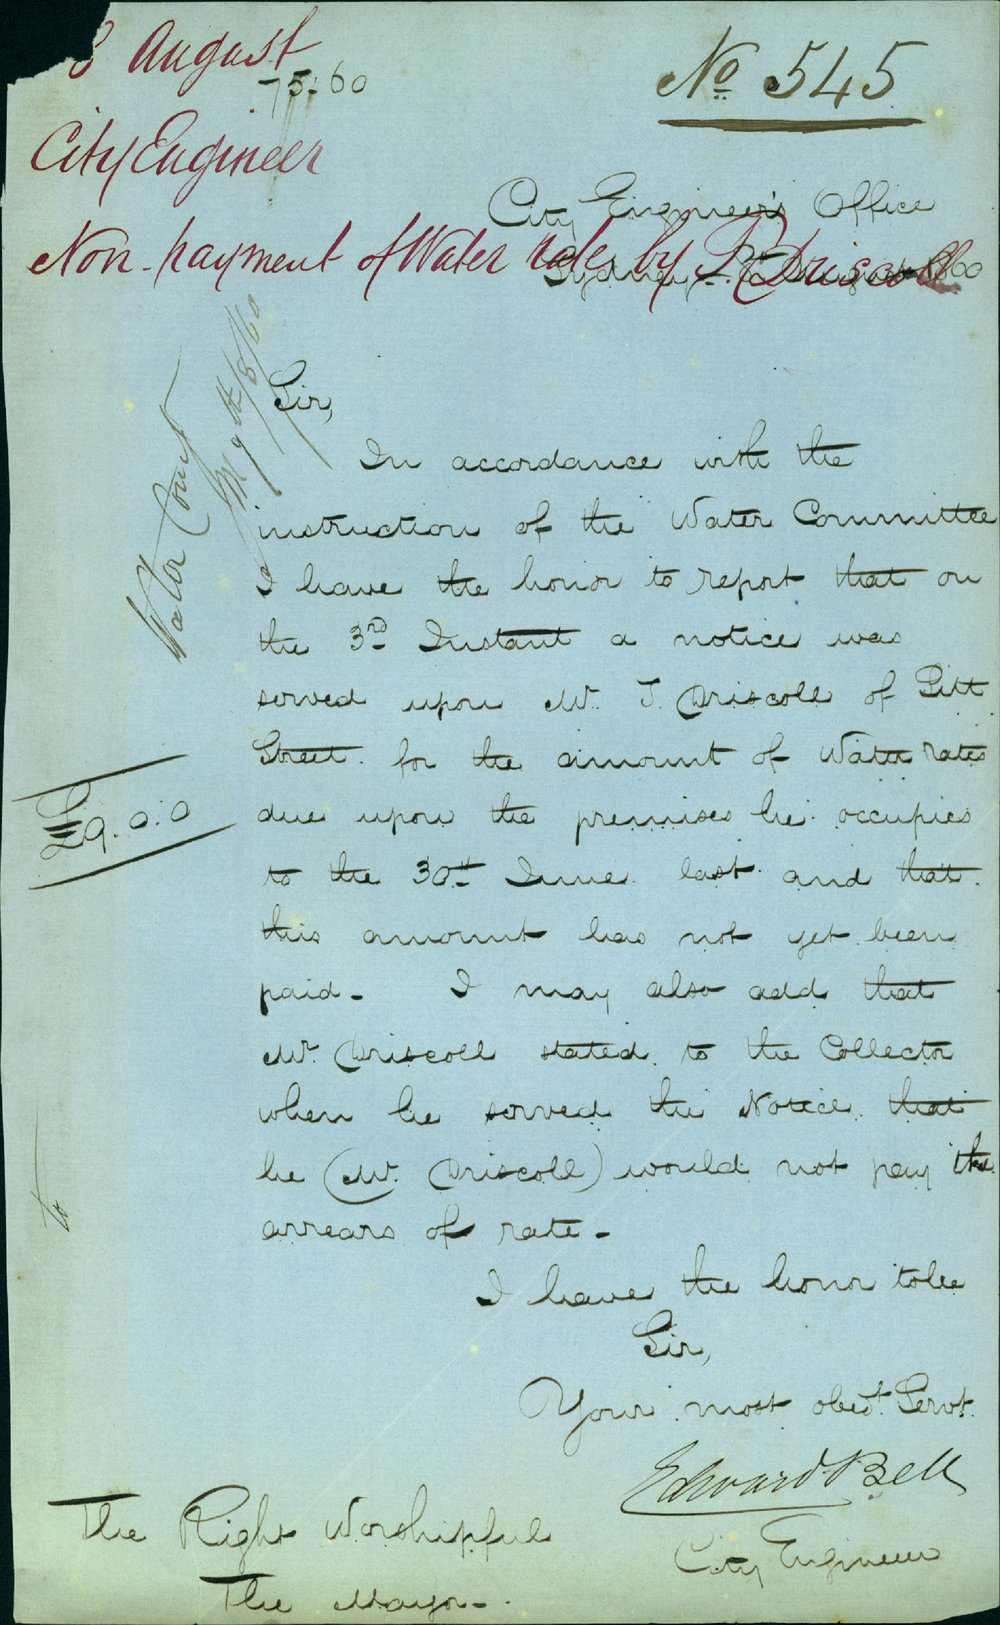 8 August
75.60
No 545
City Engineer
City Engineer's Office
Non-payment of Water rate by J Driscoll
Sydney August 1860
Water Comt
9th/8/60
Sir,
In accordance with the
instruction of the Water Committee
I have the honor to report that on
the 3rd Instant a notice was
served upon Mr. J. Driscoll of Pitt
Street. for the amount of Water rates
£9.0.0
due upon the premises he occupies
to the 30th June last and that
this amount has not yet been
paid - I may also add that
Mr. Driscoll stated to the Collector
when he served the Notice that
he (Mr. Driscoll) would not pay the
arrears of rate -
I have the honor to be
Sir,
Your most obedt. Servt.
Edward Bell
City Engineer
The Right Worshipful
The Mayor -